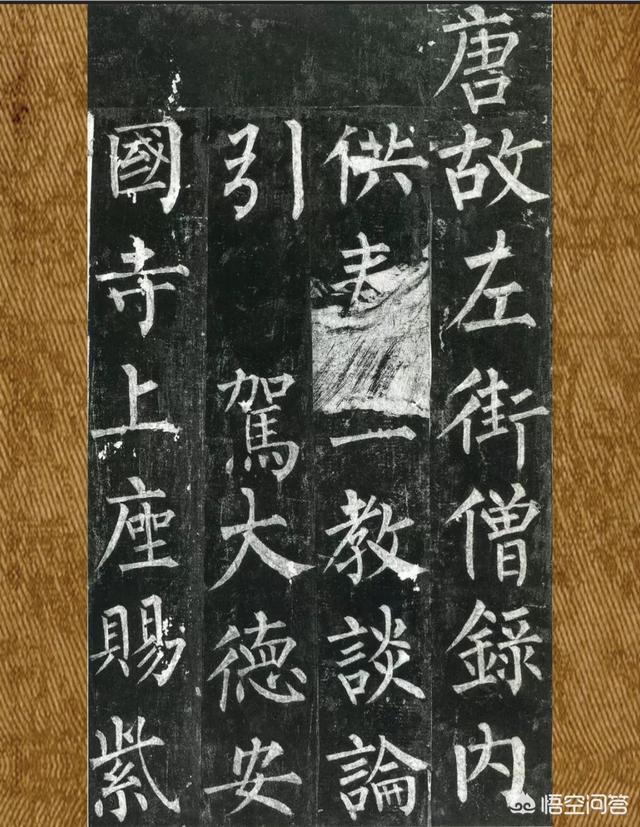 唐故左街僧錄內
供教談論
引駕大德安
國寺上座賜紫
悟空问答